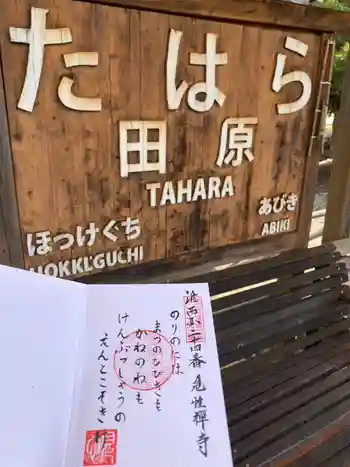 たはら
田原
TAHARA
ほっけぐち
HOKKEGUCHI
あびき
ABIKI
播西第二十四番 見性禅寺
のりのには
まつのひびきも
かねのねも
けんぶつしょうの
えんとこそきけ